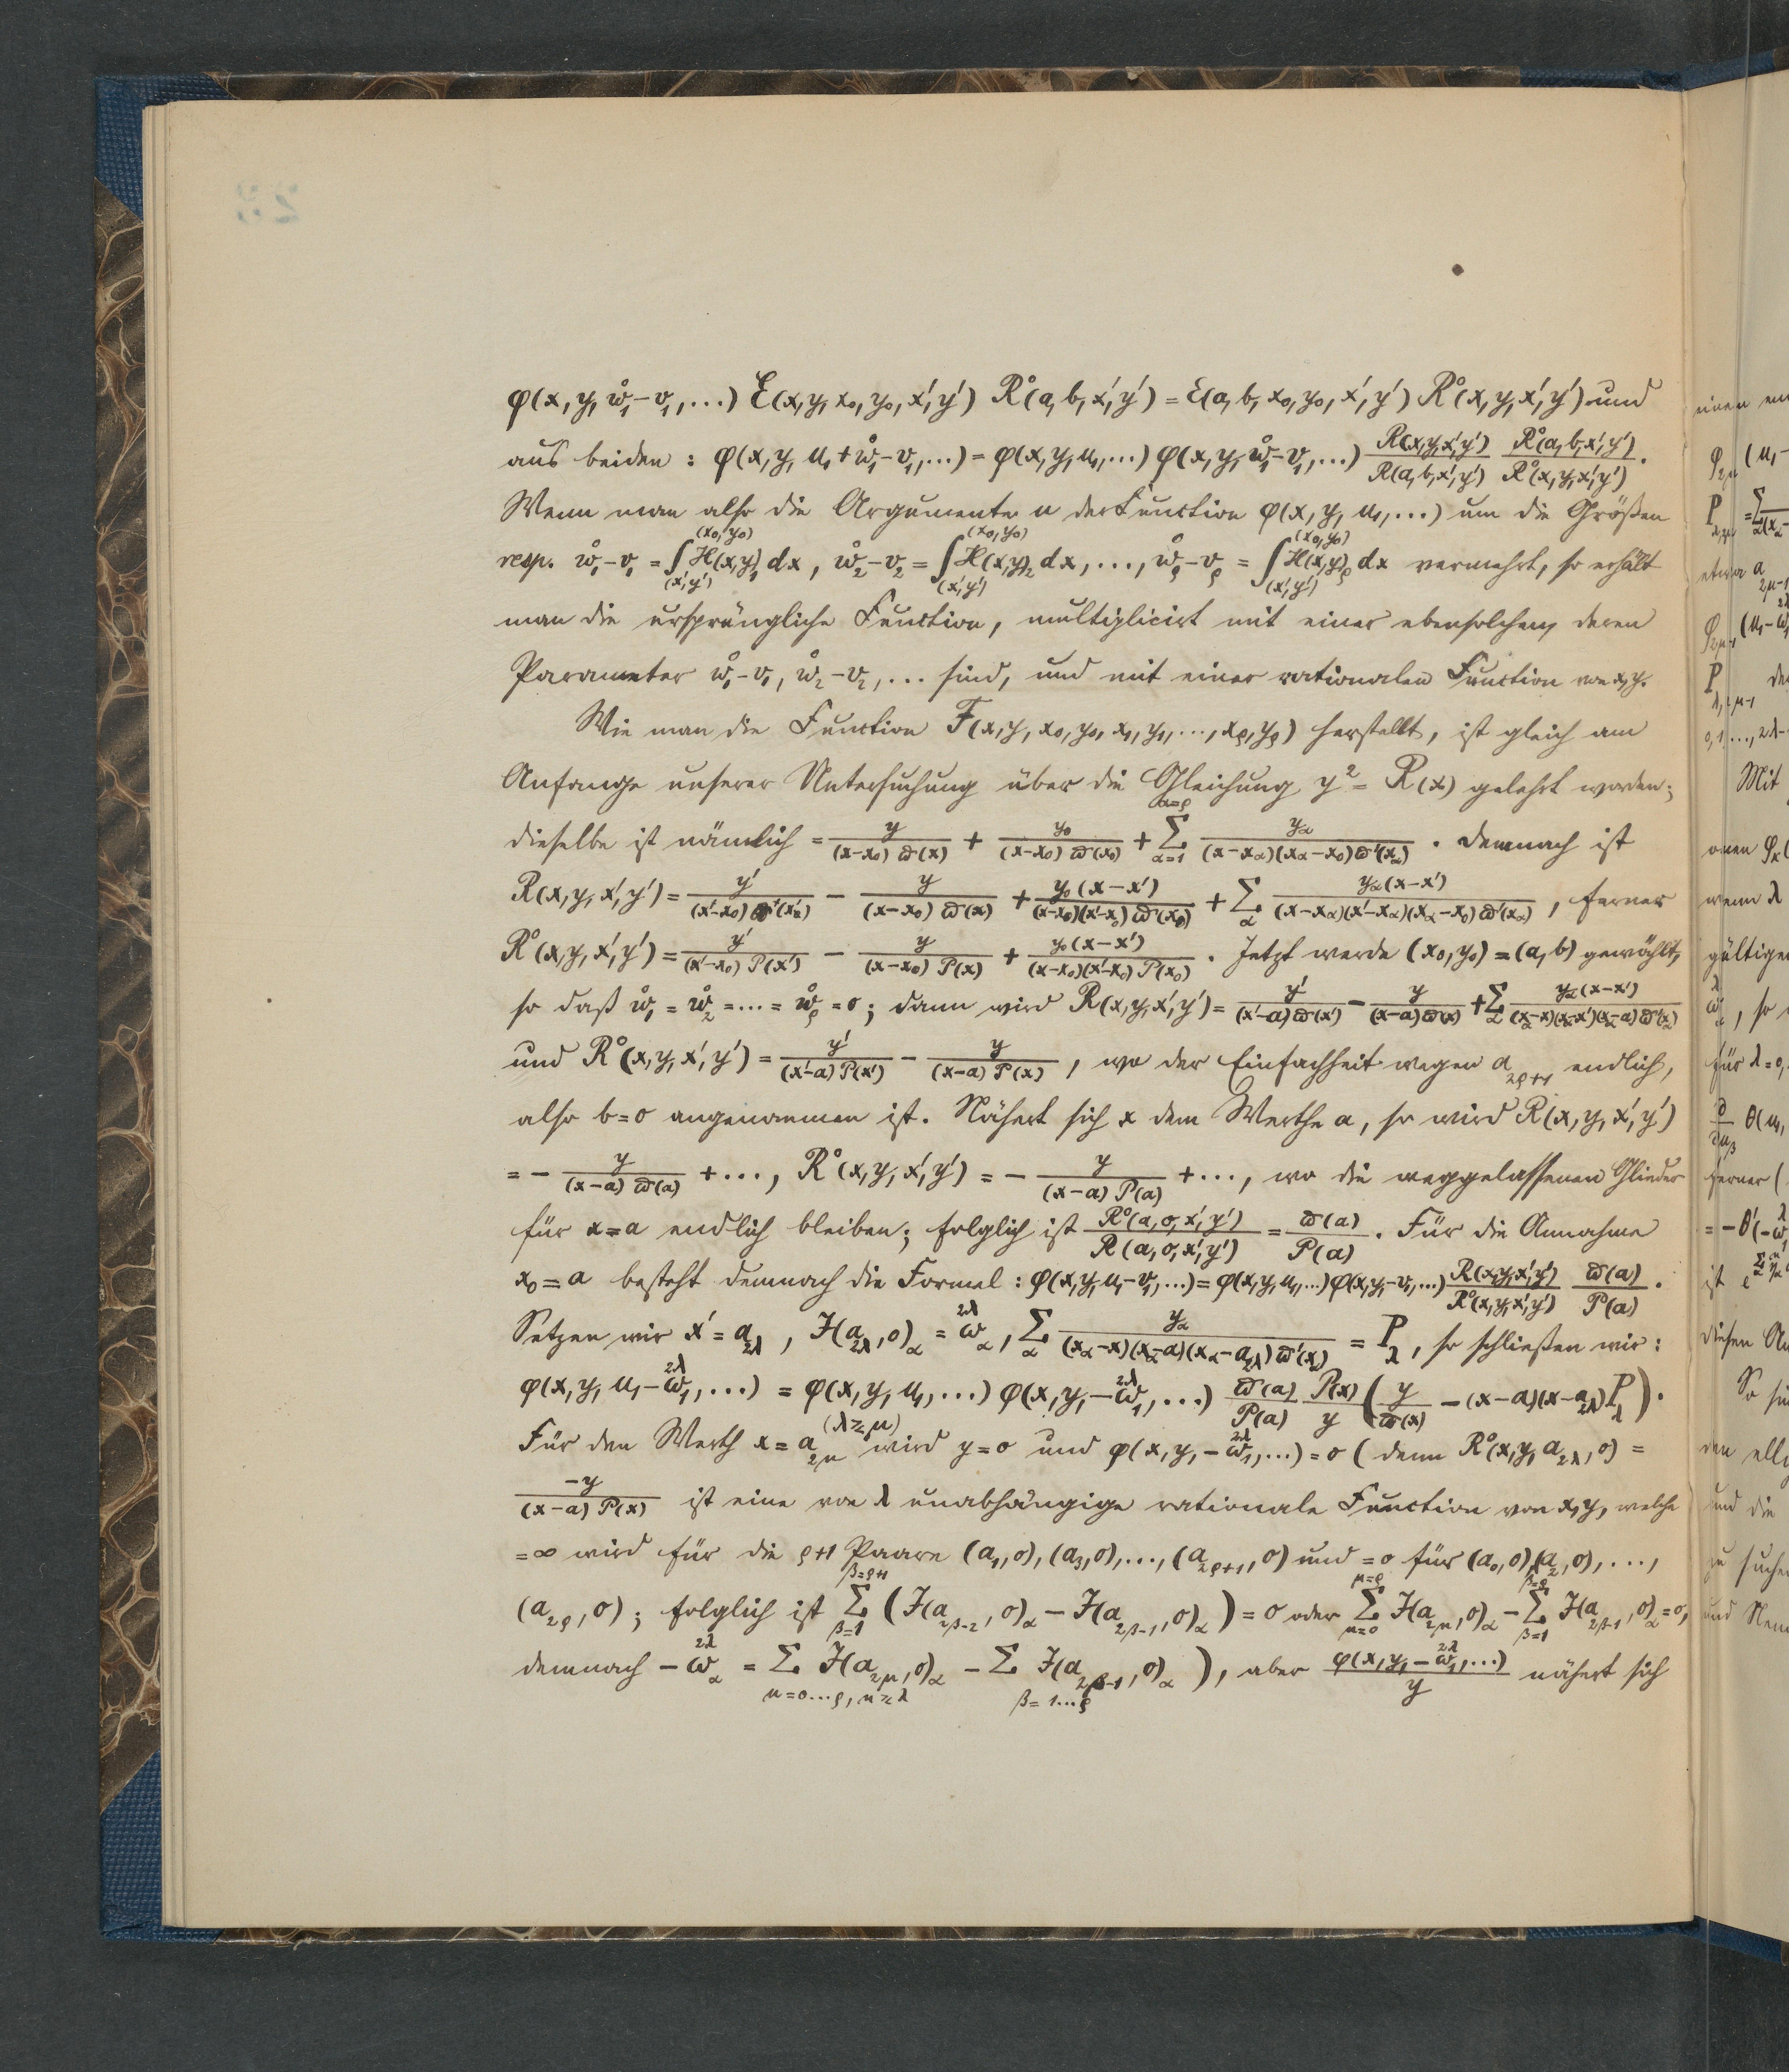 φ(x, y, ẘ₁−v₁, ...) E(x, y, x₀, y₀, x′, y′) R̊(a, b, x′, y′) = E(a, b, x₀, y₀, x′, y′) R̊(x, y, x′, y′) und
aus beiden : φ(x, y, u₁+ẘ₁−v₁, ...) = φ(x, y, u₁, ...) φ(x, y, ẘ₁−v₁, ...) R(x,y,x′,y′)/R(a,b,x′,y′) R̊(a,b,x′,y′)/R̊(x,y,x′,y′).
Wenn man also die Argumente u der Function φ(x, y, u₁, ...) um die Größen
resp. ẘ₁−v₁ = ∫_(x′,y′)^(x₀,y₀) H(x,y)₁ dx, ẘ₂−v₂ = ∫_(x′,y′)^(x₀,y₀) H(x,y)₂ dx, ..., ẘ_ρ−v_ρ = ∫_(x′,y′)^(x₀,y₀) H(x,y)_ρ dx vermehrt, so erhält
man die ursprüngliche Function, multiplicirt mit einer ebensolchen, deren
Parameter ẘ₁−v₁, ẘ₂−v₂, ... sind, und mit einer rationalen Function von x, y.
Wie man die Function F(x, y, x₀, y₀, x₁, y₁, ..., x_ρ, y_ρ) herstellt, ist gleich am
Anfange unserer Untersuchung über die Gleichung y² = R(x) gelehrt worden;
dieselbe ist nämlich = y/((x−x₀) ϖ(x)) + y₀/((x−x₀) ϖ(x₀)) + Σ_{α=1}^{α=ρ} y_α/((x−x_α)(x_α−x₀)ϖ′(x_α)) . Demnach ist
R(x, y, x′, y′) = y′/((x′−x₀) ϖ(x′)) − y/((x−x₀) ϖ(x)) + y₀(x−x′)/((x−x₀)(x′−x₀) ϖ(x₀)) + Σ_α y_α(x−x′)/((x−x_α)(x′−x_α)(x_α−x₀) ϖ′(x_α)), ferner
R̊(x, y, x′, y′) = y′/((x′−x₀) P(x′)) − y/((x−x₀) P(x)) + y₀(x−x′)/((x−x₀)(x′−x₀) P(x₀)) . Jetzt werde (x₀, y₀) = (a, b) gewählt,
so daß ẘ₁ = ẘ₂ = ... = ẘ_ρ = 0; dann wird R(x, y, x′, y′) = y′/((x′−a)ϖ(x′)) − y/((x−a)ϖ(x)) + Σ_α y_α(x−x′)/((x_α−x)(x_α−x′)(x_α−a)ϖ′(x_α))
und R̊(x, y, x′, y′) = y′/((x′−a) P(x′)) − y/((x−a) P(x)), wo der Einfachheit wegen a_{2ρ+1} endlich,
also b=0 angenommen ist. Nähert sich x dem Werthe a, so wird R(x, y, x′, y′)
= − y/((x−a) ϖ(a)) + ..., R̊(x, y, x′, y′) = − y/((x−a) P(a)) + ..., wo die weggelassenen Glieder
für x=a endlich bleiben; folglich ist R̊(a, 0, x′, y′)/R(a, 0, x′, y′) = ϖ(a)/P(a) . Für die Annahme
x₀=a besteht demnach die Formel : φ(x, y, u₁−v₁, ...) = φ(x, y, u₁, ...) φ(x, y, −v₁, ...) R(x,y,x′,y′)/R̊(x,y,x′,y′) ϖ(a)/P(a) .
Setzen wir x′ = a_{2λ}, J(a_{2λ}, 0)_α = ω_α^{2λ}, Σ_α y_α/((x_α−x)(x_α−a)(x_α−a_{2λ})ϖ′(x_α)) = P_λ, so schließen wir :
φ(x, y, u₁−ω₁^{2λ}, ...) = φ(x, y, u₁, ...) φ(x, y, −ω₁^{2λ}, ...) ϖ(a)/P(a) P(x)/y (y/ϖ(x) − (x−a)(x−a_{2λ})P_λ).
Für den Werth x = a_{2μ} (λ≷μ) wird y=0 und φ(x, y, −ω₁^{2λ}, ...) = 0 (denn R̊(x, y, a_{2λ}, 0) =
−y/((x−a) P(x)) ist eine von λ unabhängige rationale Function von x, y, welche
=∞ wird für die ρ+1 Paare (a₁, 0), (a₃, 0), ..., (a_{2ρ+1}, 0) und =0 für (a₀, 0), (a₂, 0), ...,
(a_{2ρ}, 0); folglich ist Σ_{β=1}^{β=ρ+1} (J(a_{2β−2}, 0)_α − J(a_{2β−1}, 0)_α) = 0 oder Σ_{μ=0}^{μ=ρ} J(a_{2μ}, 0)_α − Σ_{β=1}^{β=ρ} J(a_{2β−1}, 0)_α = 0,
demnach −ω_α^{2λ} = Σ_{μ=0...ρ, μ≷λ} J(a_{2μ}, 0)_α − Σ_{β=1...ρ} J(a_{2β−1}, 0)_α ), aber φ(x, y, −ω₁^{2λ}, ...)/y nähert sich